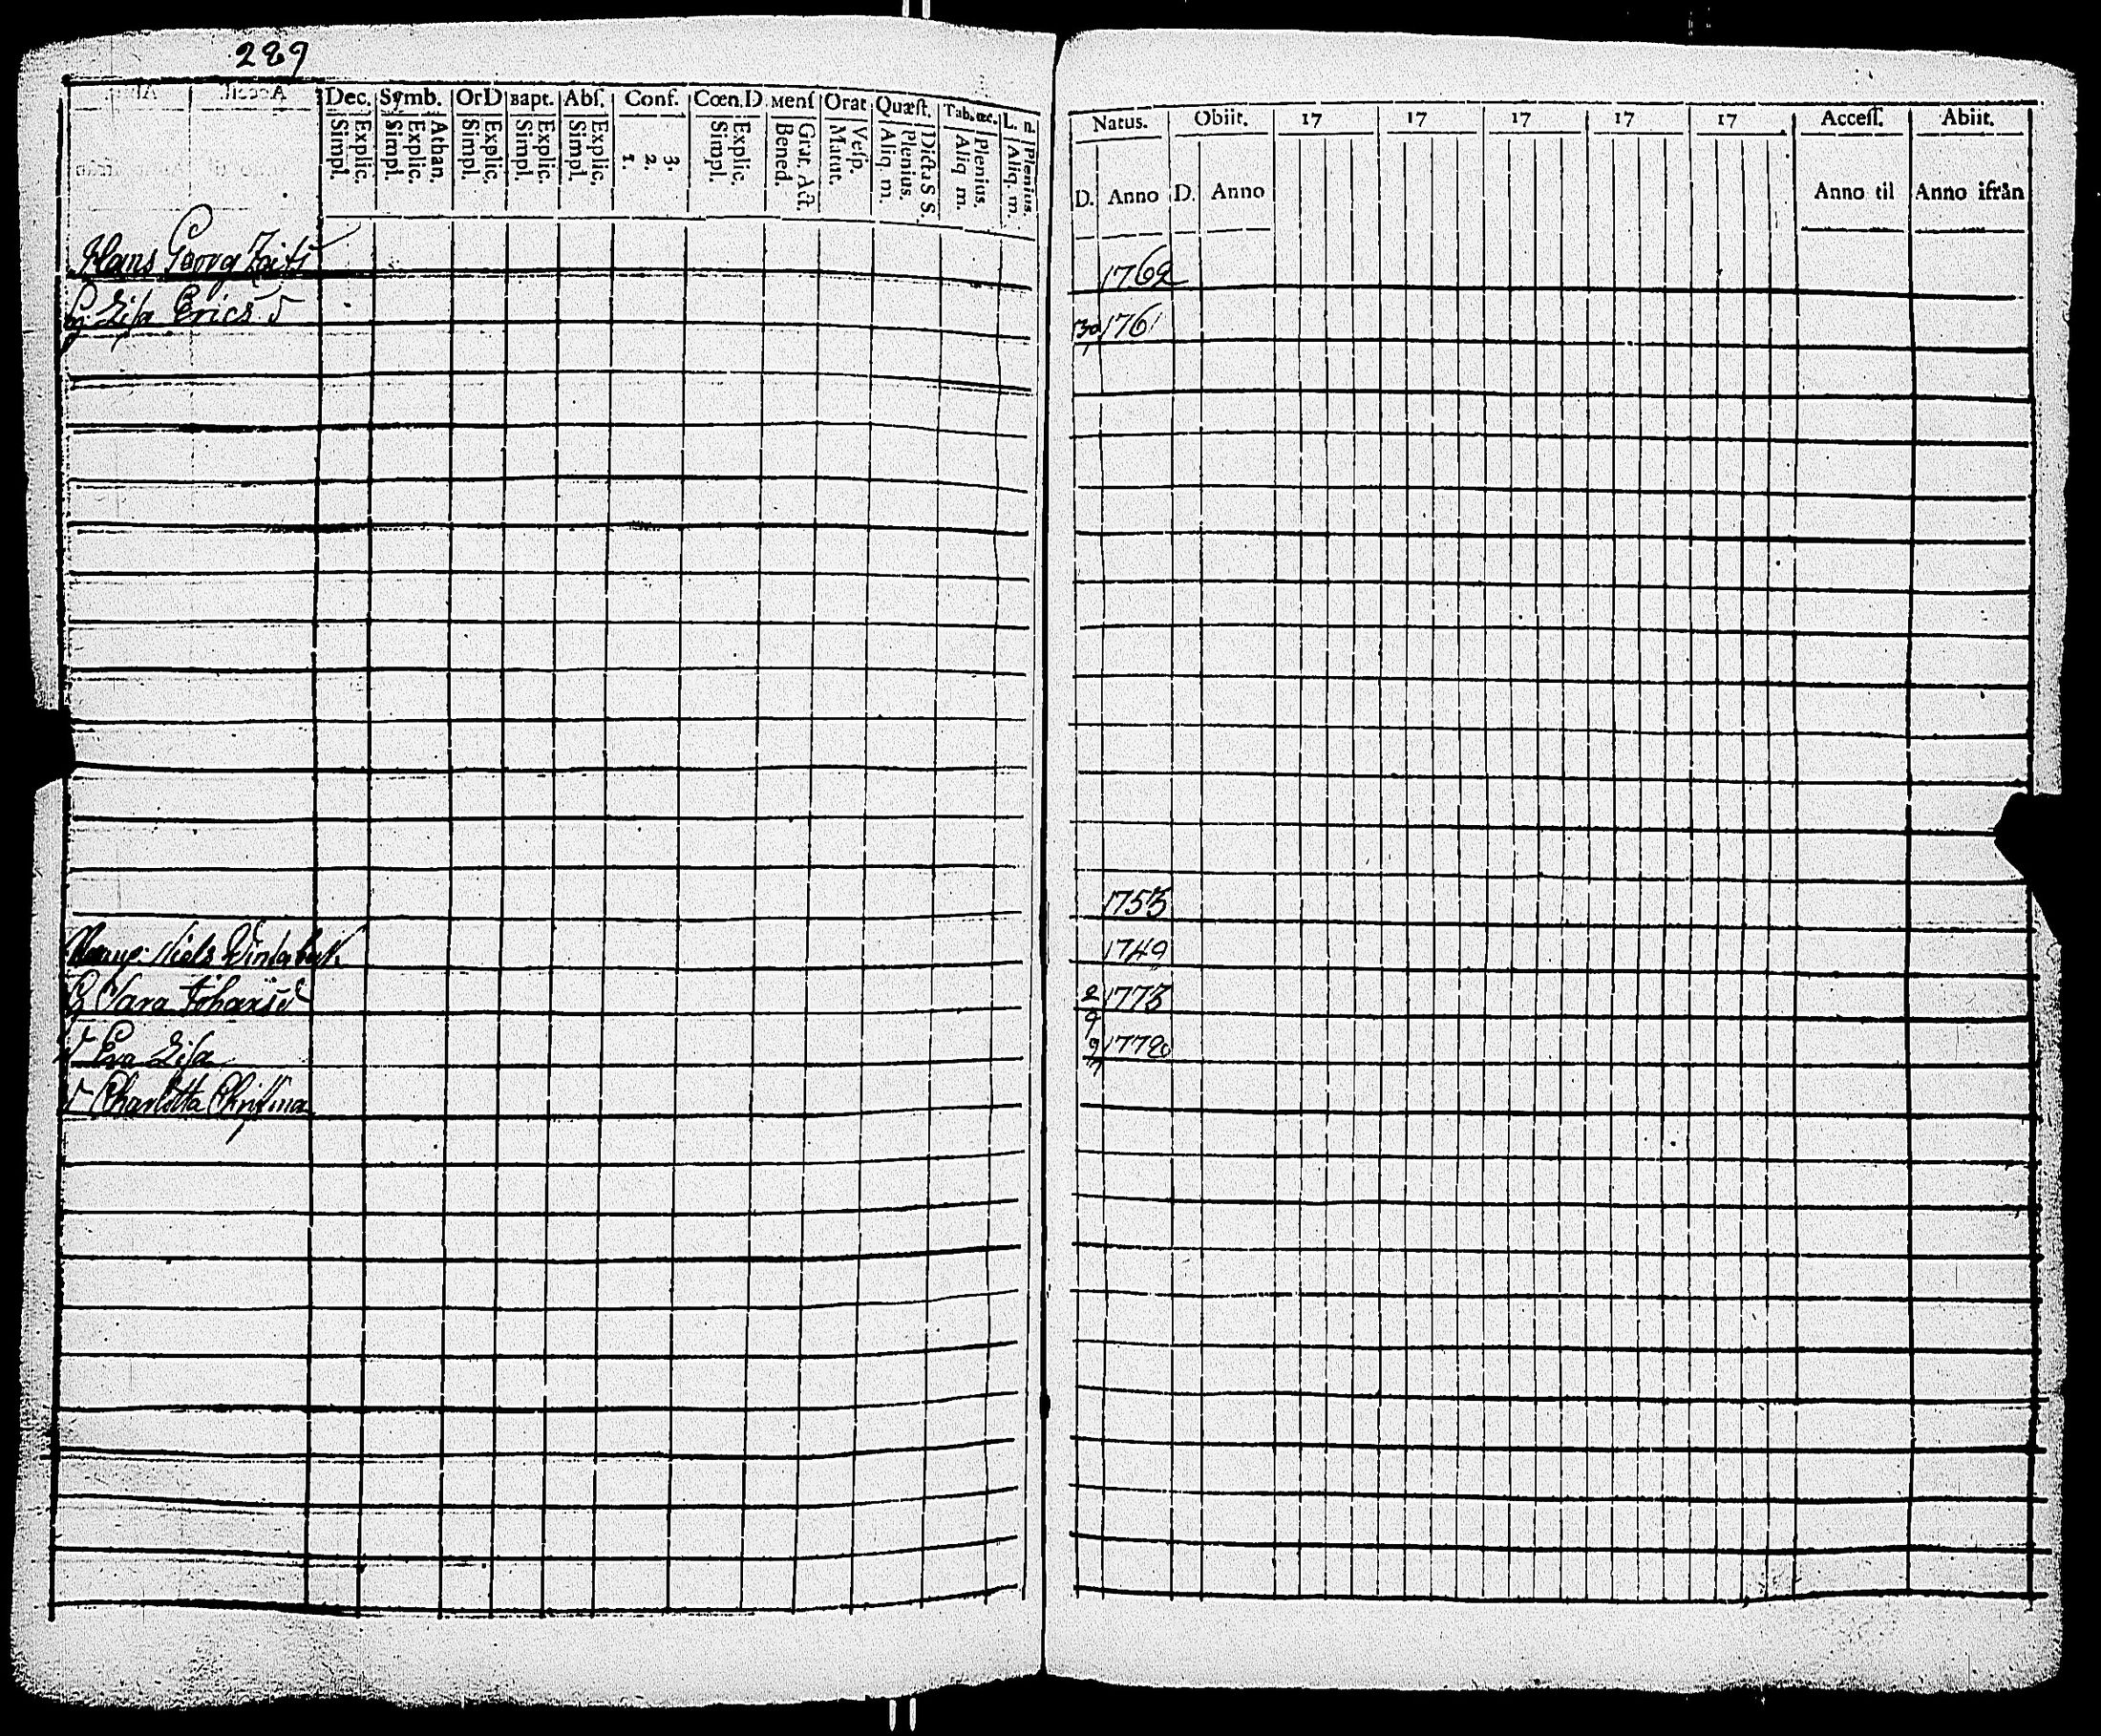 289
Dec. Symb. OrD Bapt. Abſ. Conf. Cœn.D. Menſ Orat Quæſt. Tab. œc. L. n.
Simpl. Explic. Simpl. Explic. Athan. Simpl. Explic. Simpl. Explic. Simpl. Explic. 1. 2. 3. Simpl. Explic. Bened. Grat. Act. Matut. Veſp. Aliq. m. Plenius. Dicta S S. Aliq m. Plenius. Aliq. m. Plenius.
Natus. Obiit. 17 17 17 17 17 Acceſſ. Abiit.
D. Anno D. Anno Anno til Anno ifrån
Hans Georg 1762
Liſa Erics 30 1761
1753
Niels 1749
Johansd 2/9 1773
Eva Liſa 9 1772
Charlotta Chriſtina